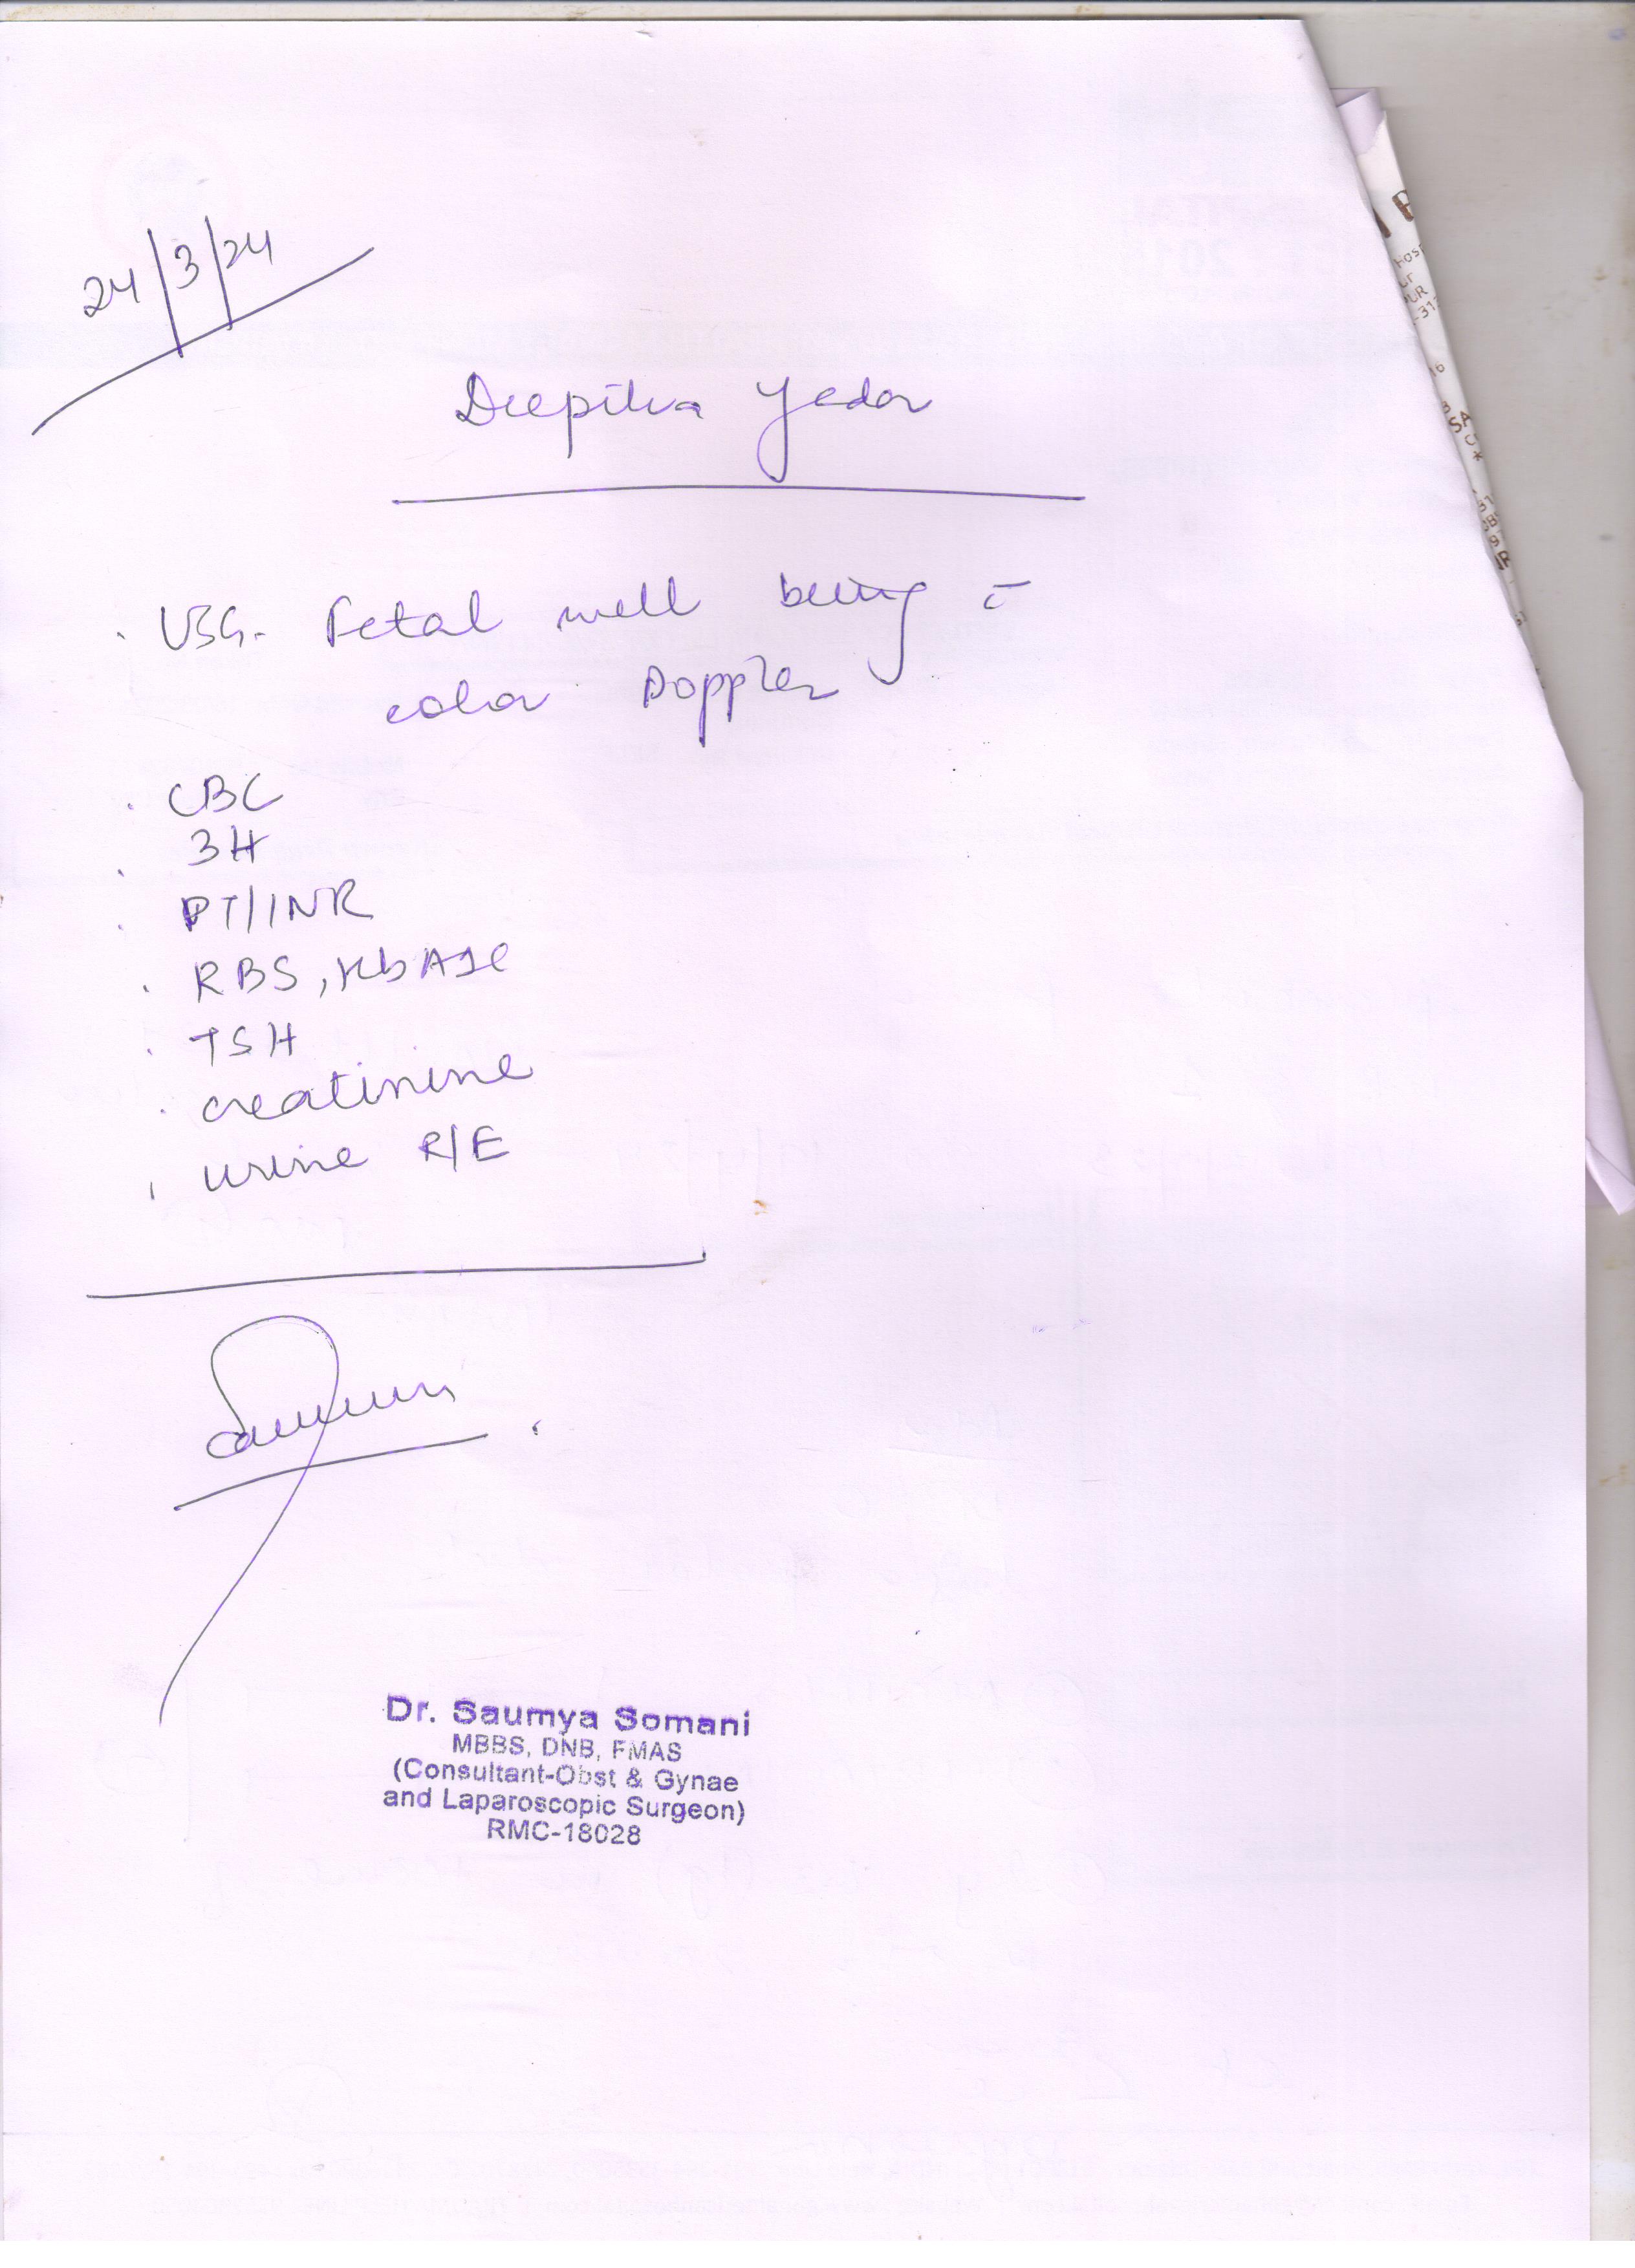 24/3/24
Deepika Yadav
. USG- Fetal well being c̄
color Doppler
. CBC
. 3H
. PT/INR
. RBS, HbA1c
. TSH
. creatinine
. urine R/E
Dr. Saumya Somani
MBBS, DNB, FMAS
(Consultant-Obst & Gynae
and Laparoscopic Surgeon)
RMC-18028